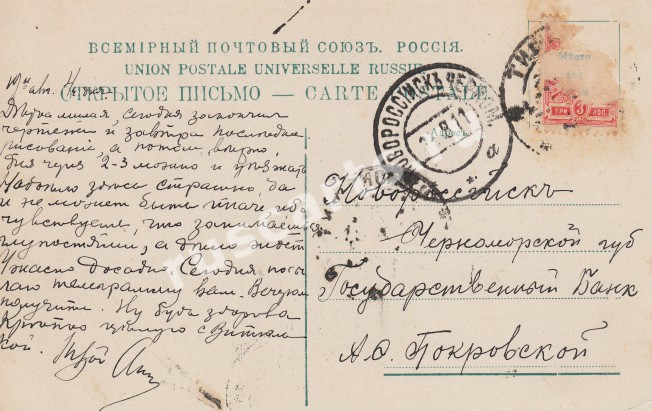 ВСЕМІРНЫЙ ПОЧТОВЫЙ СОЮЗЪ. РОССІЯ.
UNION POSTALE UNIVERSELLE RUSSIE
ОТКРЫТОЕ ПИСЬМО — CARTE POSTALE
Мѣсто
ТРИ 3 КОП.
НОВОРОССІЙСКЪ ЧЕРНОМ.
8.11
а
милая, сегодня закончил
чертежи и завтра последнее
рисование, а потом, вѣрно,
дня через 2-3 можно и уѣзжать
Надоѣло здесь страшно, да
и не может быть иначе, ибо
чувствуешь, что занимаешься
глупостями, а дѣло
Ужасно досадно. Сегодня посы
лаю телеграмму вам. Вечером
получите. Ну будь здорова
Крѣпко цѣлую с
кой. Твой
Новороссійскъ
Черноморской губ
Государственный Банк
А.Ѳ. Покровской